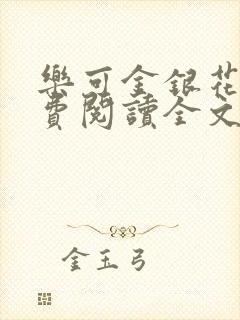 樂可金銀花
費閱讀全文
金玉弓